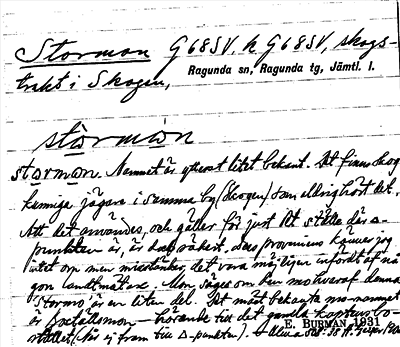 Storman G 68 SV, h G 68 SV, skogs-
trakt i Skogen,
Ragunda sn, Ragunda tg, Jämtl. l.
stårmón
storman. Namnet är ytterst litet bekant. Det finns skog
kunniga jägare i samma by (Skogen) som aldrig hört det.
Att det användes, och gäller för just det ställe där Δ-
punkten är, är dock säkert, dess proveniens känner jag
intet om men misstänker, det vara möjligen infört af nå
gon landtmätare. Men säges om den mo hvaraf denna
Stormo är en liten del. Det mäst bekanta mo-namnet
är hörande till det gamla
stället (här ej fram till Δ-punkten).
E. BURMAN 1931